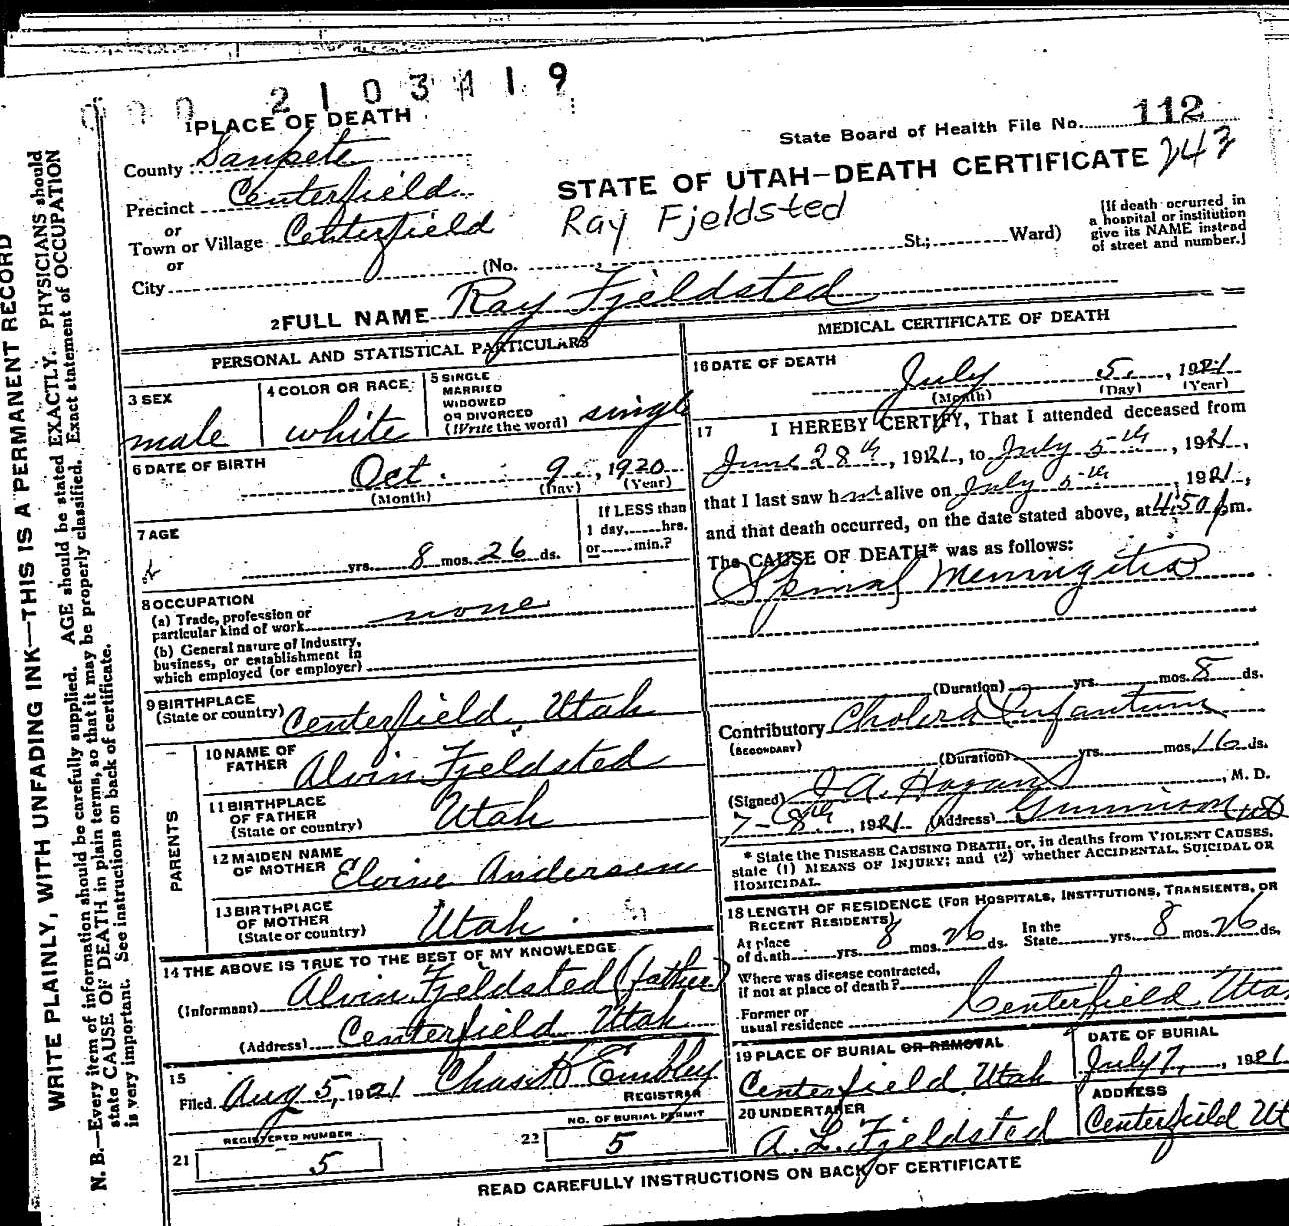 2103119
1 PLACE OF DEATH
State Board of Health File No. 112
County Sanpete
STATE OF UTAH—DEATH CERTIFICATE 243
Precinct Centerfield
Ray Fjeldsted
or
Town or Village Centerfield
or
City (No. St.; Ward)
[If death occurred in
a hospital or institution
give its NAME instead
of street and number.]
2 FULL NAME Ray Fjeldsted
PERSONAL AND STATISTICAL PARTICULARS
3 SEX
male
4 COLOR OR RACE
white
5 SINGLE
MARRIED
WIDOWED
OR DIVORCED
(Write the word) single
6 DATE OF BIRTH
Oct. 9, 1920
(Month) (Day) (Year)
7 AGE
yrs. 8 mos. 26 ds.
If LESS than
1 day, hrs.
or min.?
8 OCCUPATION
(a) Trade, profession or
particular kind of work none
(b) General nature of Industry,
business, or establishment in
which employed (or employer)
9 BIRTHPLACE
(State or country) Centerfield, Utah
PARENTS
10 NAME OF
FATHER Alvin Fjeldsted
11 BIRTHPLACE
OF FATHER
(State or country) Utah
12 MAIDEN NAME
OF MOTHER Elvine Andersen
13 BIRTHPLACE
OF MOTHER
(State or country) Utah
14 THE ABOVE IS TRUE TO THE BEST OF MY KNOWLEDGE
(Informant) Alvin Fjeldsted (father)
(Address) Centerfield Utah
15
Filed Aug 5, 1921 Chas. K Embley
REGISTRAR
REGISTERED NUMBER
21 5
NO. OF BURIAL PERMIT
22 5
MEDICAL CERTIFICATE OF DEATH
16 DATE OF DEATH
July 5, 1921
(Month) (Day) (Year)
17 I HEREBY CERTIFY, That I attended deceased from
June 28th, 1921, to July 5th, 1921,
that I last saw him alive on July 5th, 1921,
and that death occurred, on the date stated above, at 4:50 pm.
The CAUSE OF DEATH* was as follows:
Spinal Meningitis
(Duration) yrs. mos. 8 ds.
Contributory Cholera Infantum
(SECONDARY)
(Duration) yrs. mos. 16 ds.
(Signed) J A. Hagan, M. D.
7-8th, 1921 (Address) Gunnison
* State the DISEASE CAUSING DEATH, or, in deaths from VIOLENT CAUSES,
state (1) MEANS OF INJURY; and (2) whether ACCIDENTAL, SUICIDAL OR
HOMICIDAL.
18 LENGTH OF RESIDENCE (FOR HOSPITALS, INSTITUTIONS, TRANSIENTS, OR
RECENT RESIDENTS)
At place
of death yrs. 8 mos. 26 ds.
In the
State yrs. 8 mos. 26 ds.
Where was disease contracted,
if not at place of death?
Former or
usual residence Centerfield Utah
19 PLACE OF BURIAL OR REMOVAL
Centerfield, Utah
DATE OF BURIAL
July 7, 1921
20 UNDERTAKER
A. L. Fjeldsted
ADDRESS
Centerfield Ut
READ CAREFULLY INSTRUCTIONS ON BACK OF CERTIFICATE
WRITE PLAINLY, WITH UNFADING INK—THIS IS A PERMANENT RECORD
N. B.—Every item of information should be carefully supplied. AGE should be stated EXACTLY. PHYSICIANS should
state CAUSE OF DEATH in plain terms, so that it may be properly classified. Exact statement of OCCUPATION
is very important. See instructions on back of certificate.